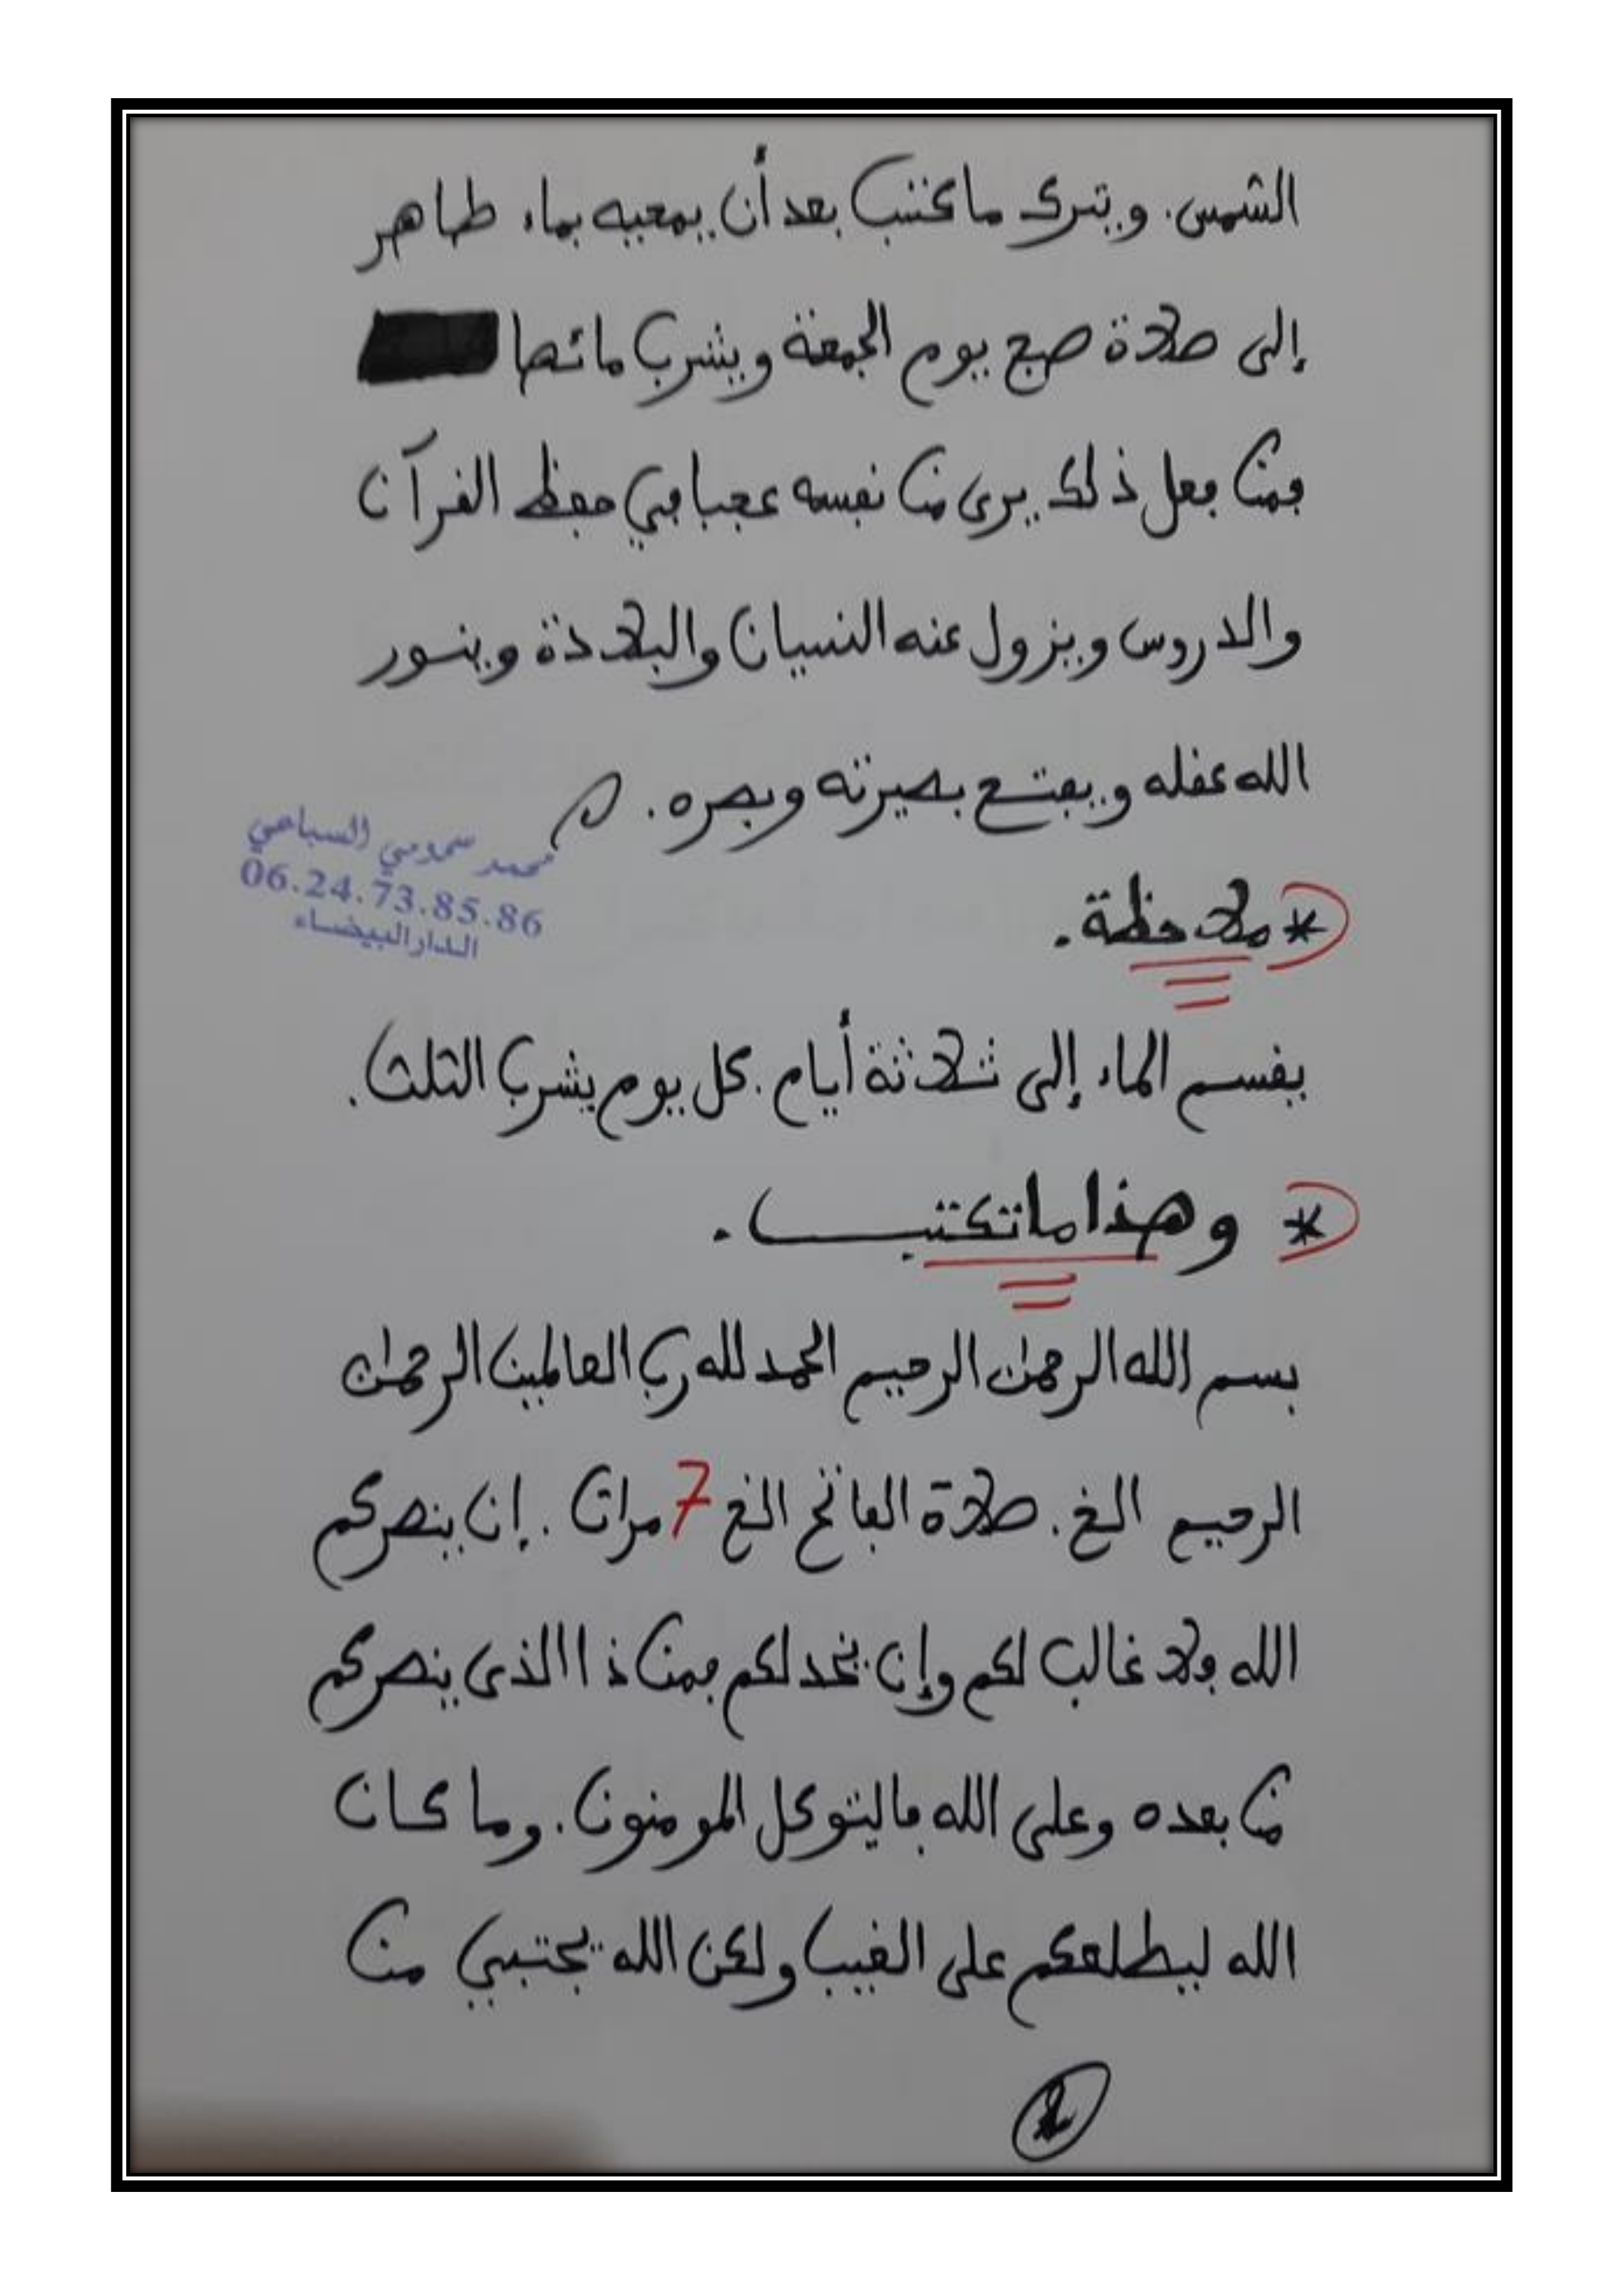 الشمس. ويترك ما كتب بعد أن يمحيه بماء طاهر
إلى صلاة صبح يوم الجمعة ويشرب مائها
فمن فعل ذلك يرى من نفسه عجبا في حفظ القرآن
والدروس ويزول عنه النسيان والبلادة وينور
الله عقله ويفتح بصيرته وبصره.
محمد السباعي
06.24.73.85.86
الدار البيضاء
* ملاحظة.
يقسم الماء إلى ثلاثة أيام. كل يوم يشرب الثلث.
* وهذا ما تكتب.
بسم الله الرحمن الرحيم الحمد لله رب العالمين الرحمن
الرحيم الخ. صلاة الفاتح الخ 7 مرات. إن ينصركم
الله فلا غالب لكم وإن يخدلكم فمن ذا الذي ينصركم
من بعده وعلى الله فاليتوكل المومنون. وما كان
الله ليطلعكم على الغيب ولكن الله يجتبي من